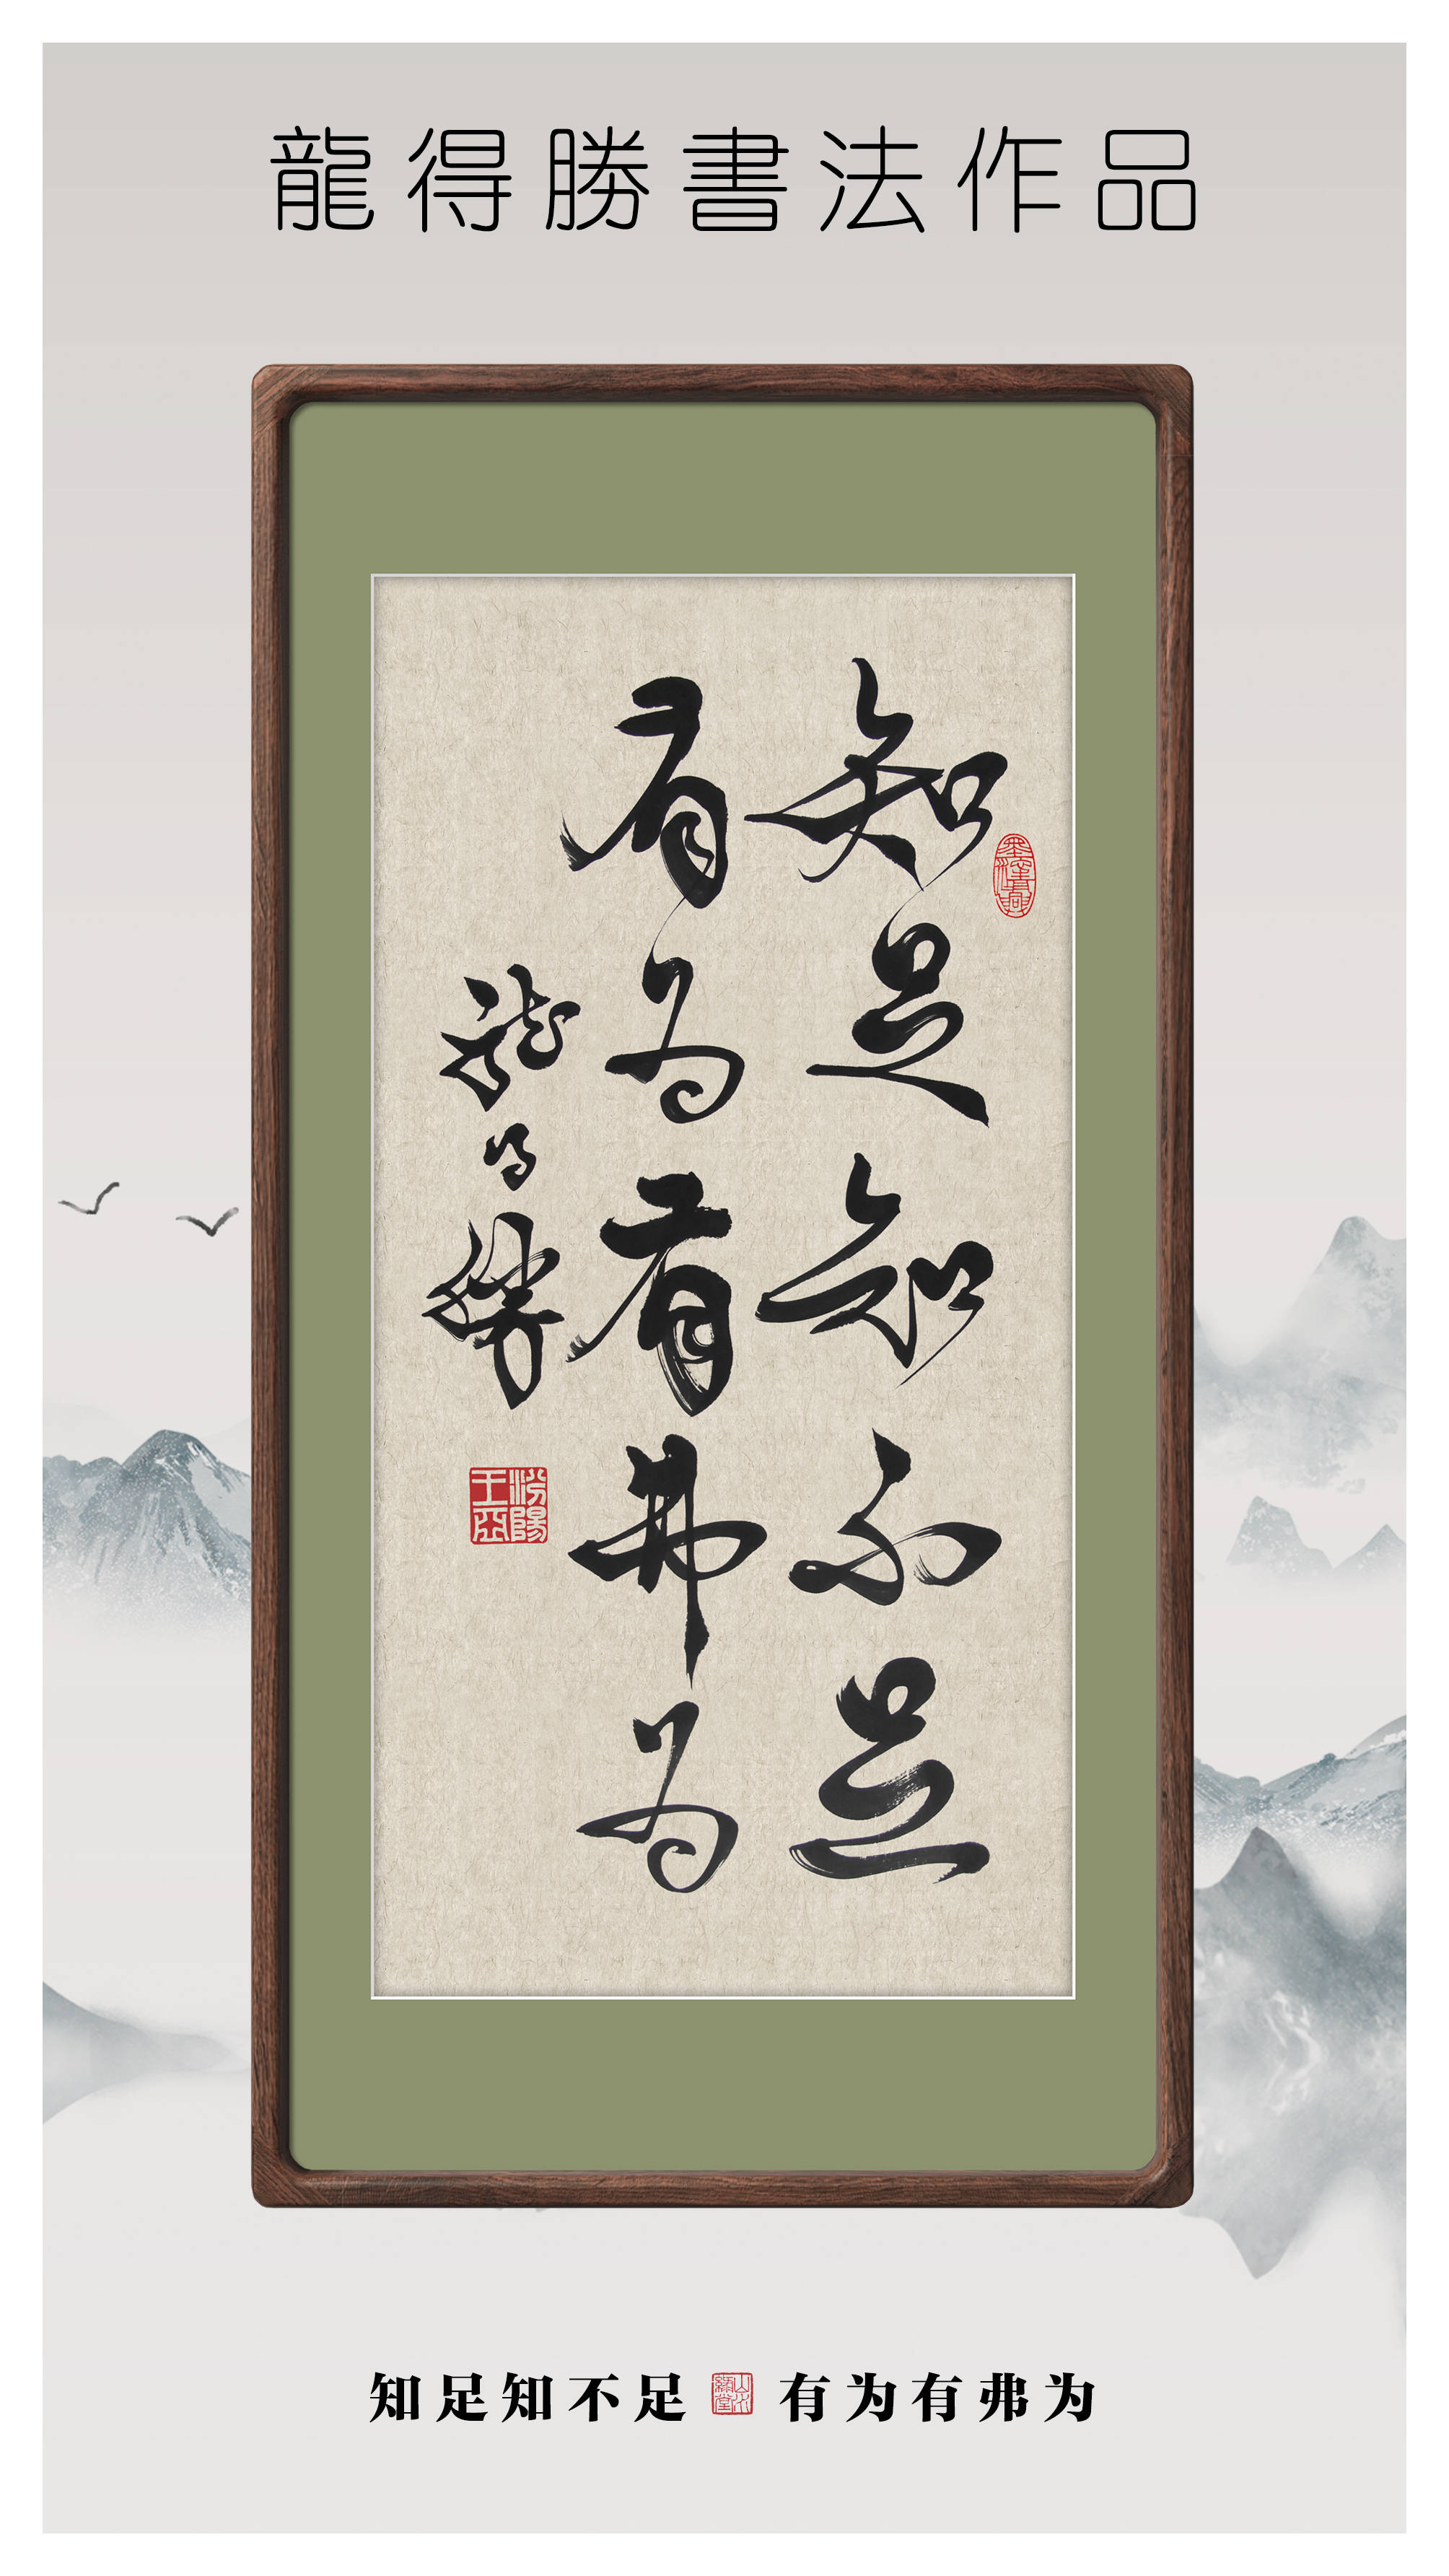 龍得勝書法作品
知足知不足
有为有弗为
龍得勝
知足知不足 有为有弗为